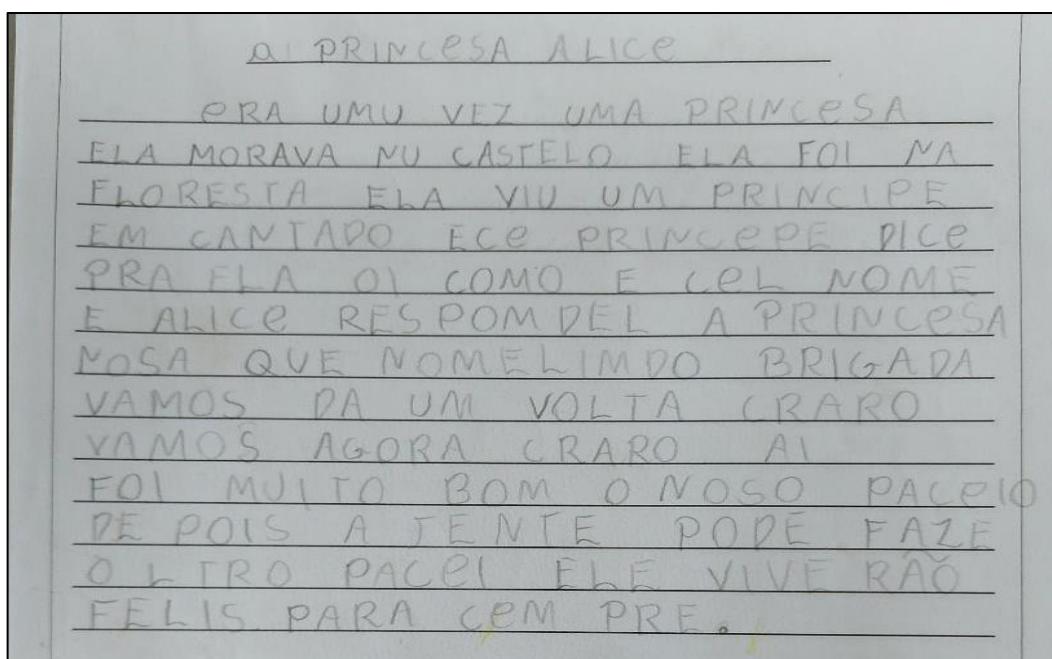 a PRINCeSA ALICe
eRA UMU VEZ UMA PRINCeSA
ELA MORAVA NU CASTELO ELA FOI NA
FLORESTA ELA VIU UM PRINCIPE
EM CANTADO ECe PRINCePE DICe
PRA ELA OI COMO E CeL NOME
E ALICe RESPOMDEL A PRINCeSA
NOSA QUE NOMELIMDO BRIGADA
VAMOS DA UM VOLTA CRARO
VAMOS AGORA CRARO AI
FOI MUITO BOM O NOSO PACeIO
DE POIS A JENTE PODE FAZE
OLTRO PACeI ELE VIVE RÃO
FELIS PARA CeM PRE.